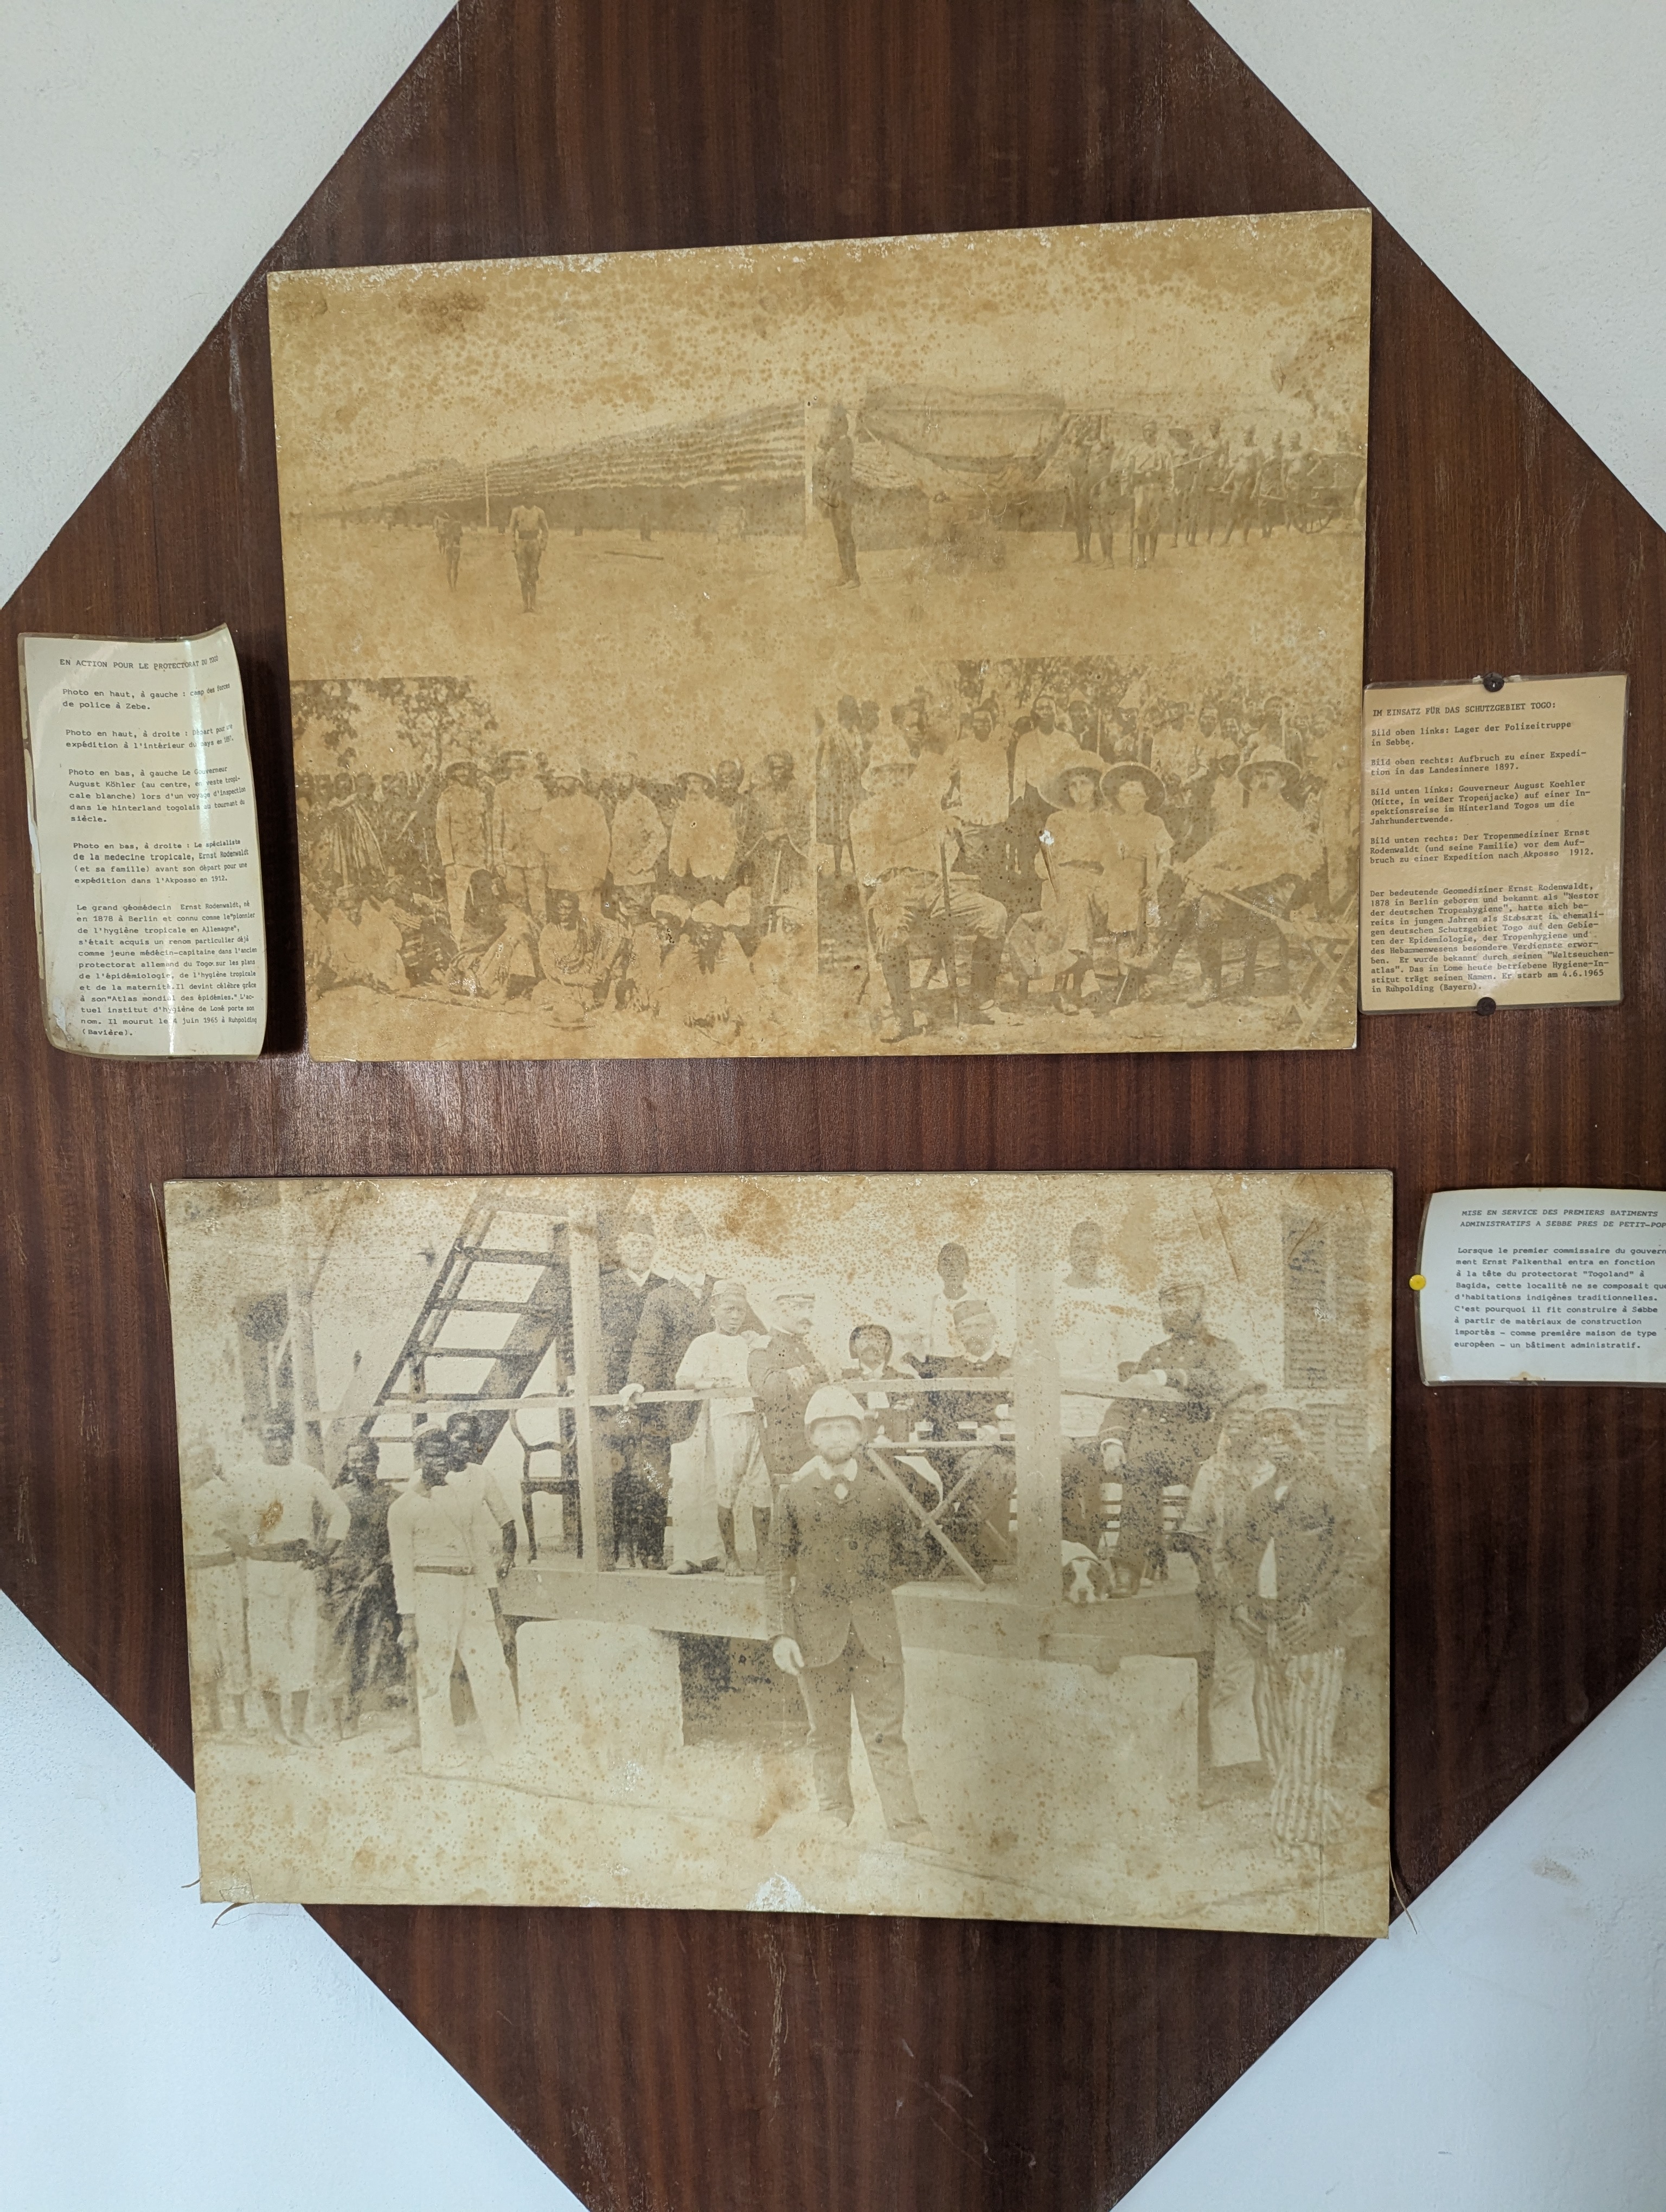 EN ACTION POUR LE PROTECTORAT DU TOGO
Photo en haut, à gauche : camp des forces
de police à Zebe.
Photo en haut, à droite : Départ pour une
expédition à l'intérieur du pays en 1897.
Photo en bas, à gauche Le Gouverneur
August Köhler (au centre, en veste tropi-
cale blanche) lors d'un voyage d'inspection
dans le hinterland togolais au tournant du
siècle.
Photo en bas, à droite : Le spécialiste
de la medecine tropicale, Ernst Rodenwaldt
(et sa famille) avant son départ pour une
expédition dans l'Akposso en 1912.
Le grand géomédecin Ernst Rodenwaldt, né
en 1878 à Berlin et connu comme le "pionnier
de l'hygiène tropicale en Allemagne",
s'était acquis un renom particulier déjà
comme jeune médécin-capitaine dans l'ancien
protectorat allemand du Togo sur les plans
de l'épidémiologie, de l'hygiène tropicale
et de la maternité. Il devint célèbre grâce
à son "Atlas mondial des épidémies." L'ac-
tuel institut d'hygiène de Lomé porte son
nom. Il mourut le 4 juin 1965 à Ruhpolding
(Bavière).
IM EINSATZ FÜR DAS SCHUTZGEBIET TOGO:
Bild oben links: Lager der Polizeitruppe
in Sebbe.
Bild oben rechts: Aufbruch zu einer Expedi-
tion in das Landesinnere 1897.
Bild unten links: Gouverneur August Koehler
(Mitte, in weißer Tropenjacke) auf einer In-
spektionsreise im Hinterland Togos um die
Jahrhundertwende.
Bild unten rechts: Der Tropenmediziner Ernst
Rodenwaldt (und seine Familie) vor dem Auf-
bruch zu einer Expedition nach Akposso 1912.
Der bedeutende Geomediziner Ernst Rodenwaldt,
1878 in Berlin geboren und bekannt als "Nestor
der deutschen Tropenhygiene", hatte sich be-
reits in jungen Jahren als Stabsarzt im ehemali-
gen deutschen Schutzgebiet Togo auf den Gebie-
ten der Epidemiologie, der Tropenhygiene und
des Hebammenwesens besondere Verdienste erwor-
ben. Er wurde bekannt durch seinen "Weltseuchen-
atlas". Das in Lome heute betriebene Hygiene-In-
stitut trägt seinen Namen. Er starb am 4.6.1965
in Ruhpolding (Bayern).
MISE EN SERVICE DES PREMIERS BATIMENTS
ADMINISTRATIFS A SEBBE PRES DE PETIT-POP
Lorsque le premier commissaire du gouvern
ment Ernst Falkenthal entra en fonction
à la tête du protectorat "Togoland" à
Bagida, cette localité ne se composait que
d'habitations indigènes traditionnelles.
C'est pourquoi il fit construire à Sebbe
à partir de matériaux de construction
importés - comme première maison de type
européen - un bâtiment administratif.